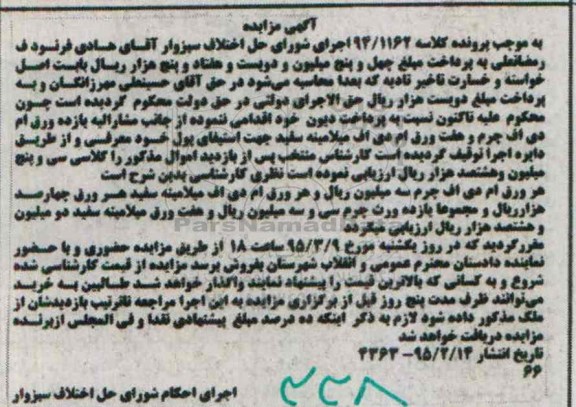 آگهی مزایده
به موجب پرونده کلاسه ۹۴/۱۱۶۲ اجرای شورای حل اختلاف سبزوار آقای هادی فرنود ف
رمضانعلی به پرداخت مبلغ چهل و پنج میلیون و دویست و هفتاد و پنج هزار ریال بابت اصل
خواسته و خسارت تاخیر تادیه که بعدا محاسبه می‌شود در حق آقای حسینعلی مهرزانگان و به
پرداخت مبلغ دویست هزار ریال حق الاجرای دولتی در حق دولت محکوم گردیده است چون
محکوم علیه تاکنون نسبت به پرداخت دیون خود اقدامی ننموده از جانب مشارالیه یازده ورق ام
دی اف چرم و هفت ورق ام دی اف میلامینه سفید جهت استیفای پول خود معرفی و از طریق
دایره اجرا توقیف گردیده است کارشناس منتخب پس از بازدید اموال مذکور را کلاسی سی و پنج
میلیون وهشتصد هزار ریال ارزیابی نموده است نظری کارشناسی بدین شرح است
هر ورق ام دی اف چرم سه میلیون ریال و هر ورق ام دی اف میلامینه سفید هر ورق چهارصد
هزارریال و مجموعا یازده ورت چرم سی و سه میلیون ریال و هفت ورق میلامینه سفید دو میلیون
و هشتصد هزار ریال ارزیابی میگردد
ParsNamadData
مقررگردید که در روز یکشنبه مورخ ۹۵/۳/۹ ساعت ۱۸ از طریق مزایده حضوری و با حضور
نماینده دادستان محترم عمومی و انقلاب شهرستان بفروش برسد مزایده از قیمت کارشناسی شده
شروع و به کسانی که بالاترین قیمت را پیشنهاد نمایند واگذار خواهد شد طالبین به خرید
می‌توانند ظرف مدت پنج روز قبل از برگزاری مزایده به این اجرا مراجعه تاترتیب بازدیدشان از
ملک مذکور داده شود لازم به ذکر اینکه ده درصد مبلغ پیشنهادی نقدا و فی المجلس ازبرنده
مزایده دریافت خواهد شد
تاریخ انتشار ۹۵/۲/۱۴- ۴۳۶۳
۶۶
اجرای احکام شورای حل اختلاف سبزوار
۲۳۸